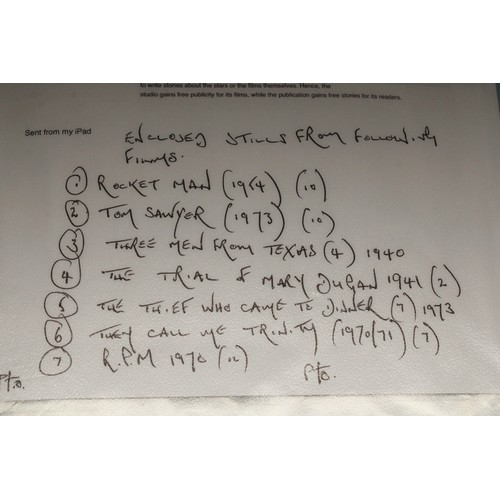 to write stories about the stars or the films themselves. Hence, the
studio gains free publicity for its films, while the publication gains free stories for its readers.
Sent from my iPad
ENCLOSED STILLS FROM FOLLOWING
FILMS.
1 ROCKET MAN (1954) (10)
2 TOM SAWYER (1973) (10)
3 THREE MEN FROM TEXAS (4) 1940
4 THE TRIAL OF MARY DUGAN 1941 (2)
5 THE THIEF WHO CAME TO DINNER (7) 1973
6 THEY CALL ME TRINITY (1970/71) (7)
7 R.P.M 1970 (12)
P.t.o. P.t.o.